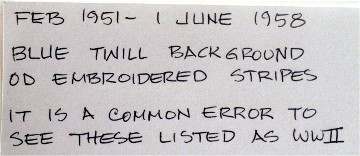 FEB 1951- 1 JUNE 1958
BLUE TWILL BACKGROUND
OD EMBROIDERED STRIPES
IT IS A COMMON ERROR TO
SEE THESE LISTED AS WWII